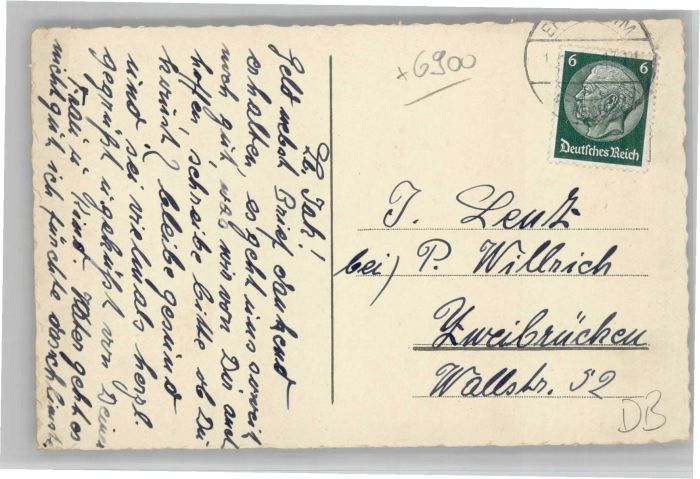 Lb. Jak!
Geld nebst Brief dankend
erhalten, es geht uns soweit
noch gut, was wir von Dir auch
hoffen, schreibe bitte ob Du
kommst? bleibe gesund
und sei vielmals herzl.
gegrüßt u. geküßt von Deiner
Frau u. Kind. Vater geht es
nicht gut, ich fürchte
x6900
6 6
Deutsches Reich
J. Lenz
bei) P. Willrich
Zweibrücken
Wallstr. 52
DB